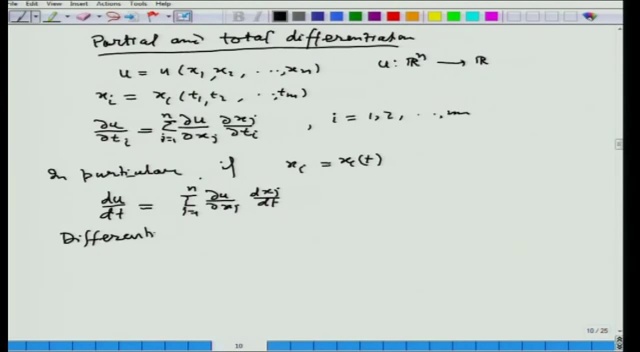 File Edit View Insert Actions Tools Help
Partial and total differentiation
u = u(x₁, x₂, ..., xₙ)    u: ℝⁿ → ℝ
xᵢ = xᵢ(t₁, t₂, ..., tₘ)
∂u/∂tᵢ = Σⱼ₌₁ⁿ ∂u/∂xⱼ ∂xⱼ/∂tᵢ , i = 1, 2, ..., m
In particular, if xᵢ = xᵢ(t)
du/dt = Σⱼ₌₁ⁿ ∂u/∂xⱼ dxⱼ/dt
Differenti
10 / 25
10